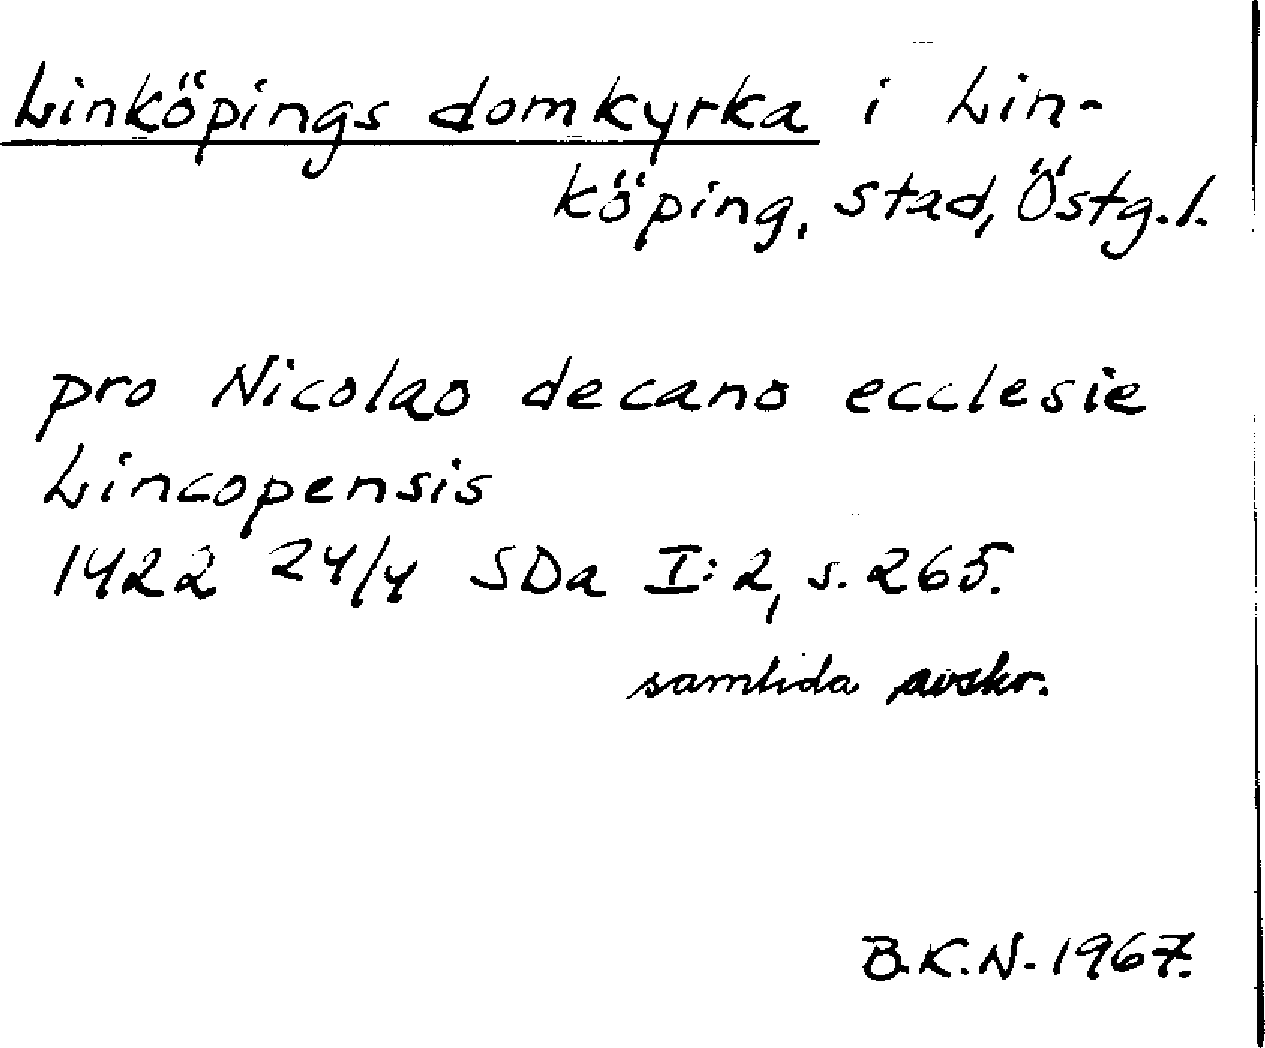 Linköpings domkyrka i Lin-
köping, stad, Östg.l.
pro Nicolao decano ecclesie
Lincopensis
1422 24/4 SDa I:2, s. 265.
samtida avskr.
B.K.N. 1967.